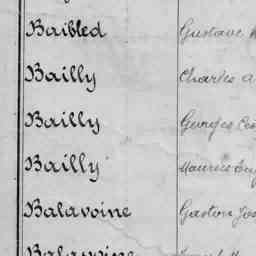 Baibled Gustave
Bailly Charles A
Bailly Georges
Bailly Maurice Eug
Balavoine Gaston Jos
Balavoine